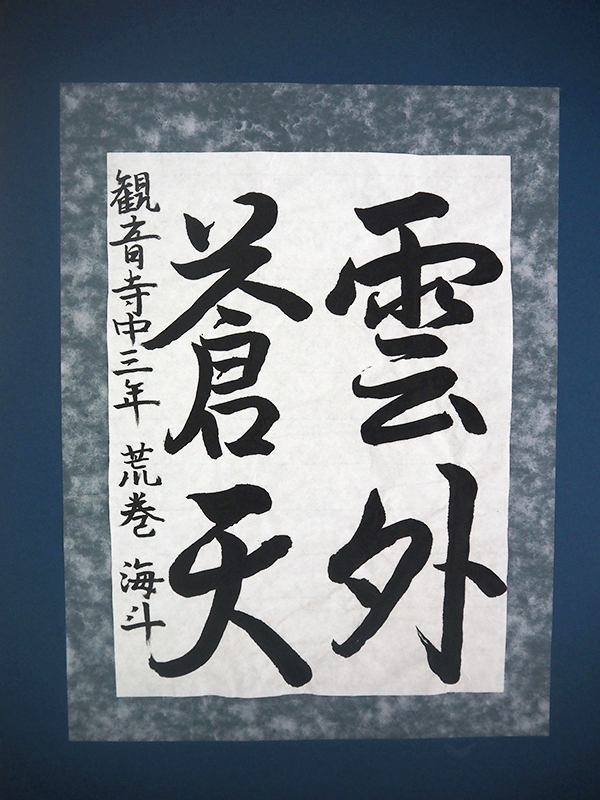 雲外
蒼天
観音寺中三年 荒巻 海斗